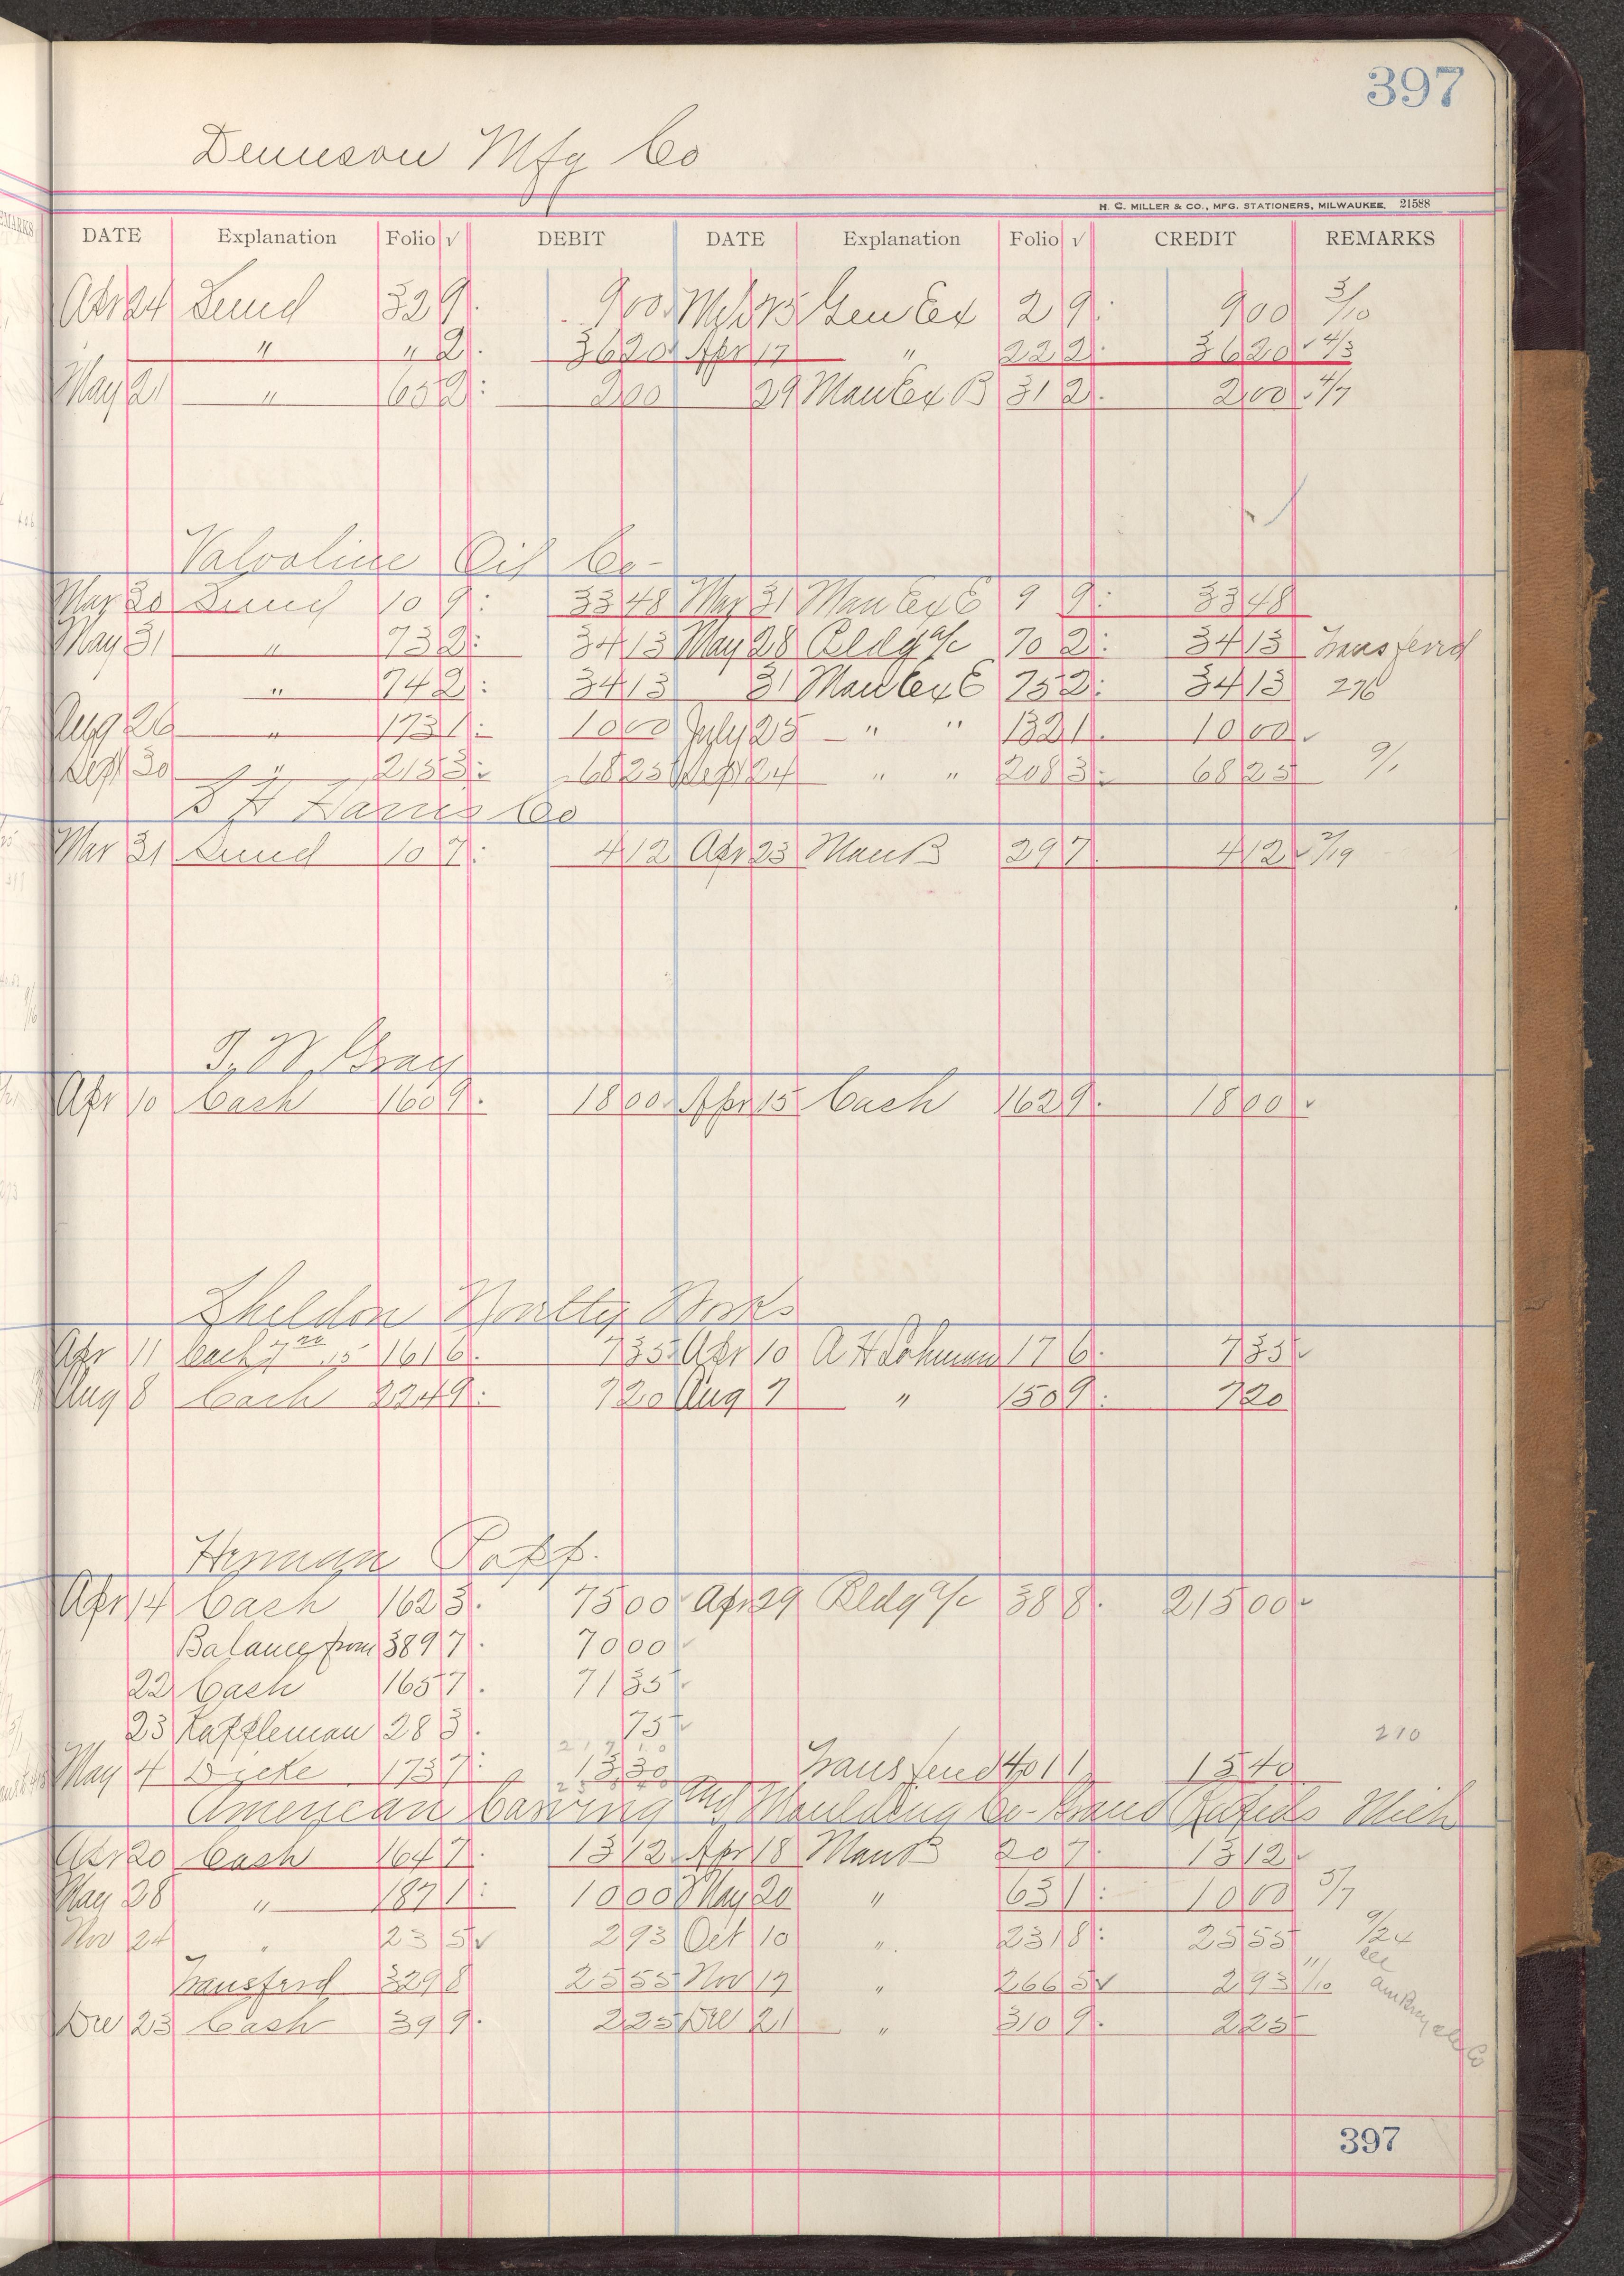 397
Dennison Mfg Co
H. C. MILLER & CO., MFG. STATIONERS, MILWAUKEE. 21588
DATE Explanation Folio √ DEBIT DATE Explanation Folio √ CREDIT REMARKS
Apr 24 Sund 32 9 9 00 Mch 25 Gen Ex 2 9 9 00 3/10
" " 2 36 20 Apr 17 " 22 2 36 20 4/3
May 21 " 65 2 2 00 29 Man Ex B 31 2 2 00 4/7
Valvoline Oil Co
Mar 30 Sund 10 9 33 48 Mar 31 Man Ex E 9 9 33 48
May 31 " 73 2 34 13 May 28 Bldg a/c 70 2 34 13 Transferrd
" 74 2 34 13 31 Man Ex E 75 2 34 13 276
Aug 26 " 173 1 10 00 July 25 " " 132 1 10 00
Sept 30 " 215 3 68 25 Sept 24 " " 208 3 68 25 9/1
S H Harris Co
Mar 31 Sund 10 7 4 12 Apr 23 Man B 29 7 4 12 2/19
T. W. Gray
Apr 10 Cash 160 9 18 00 Apr 15 Cash 162 9 18 00
Sheldon Novelty Works
Apr 11 Cash 7 20 15 161 6 7 35 Apr 10 A H Lohman 17 6 7 35
Aug 8 Cash 224 9 7 20 Aug 7 " 150 9 7 20
Hyman Papp.
Apr 14 Cash 162 3 75 00 Apr 29 Bldg a/c 38 8 215 00
Balance from 389 7 70 00
22 Cash 165 7 71 35
23 Kaffleman 28 3 75
217 10 210
May 4 Dicke 173 7 13 30 Transferrd 401 1 15 40
American Carving and Moulding Co - Grand Rapids Mich
Apr 20 Cash 164 7 13 12 Apr 18 Man B 20 7 13 12
May 28 " 187 1 10 00 May 20 " 63 1 10 00 5/7
Nov 24 " 23 5 2 93 Oct 10 " 231 8 25 55 9/24
Transferd 329 8 25 55 Nov 19 " 266 5 2 93 11/10 see
Dec 23 Cash 39 9 2 25 Dec 21 " 310 9 2 25
397